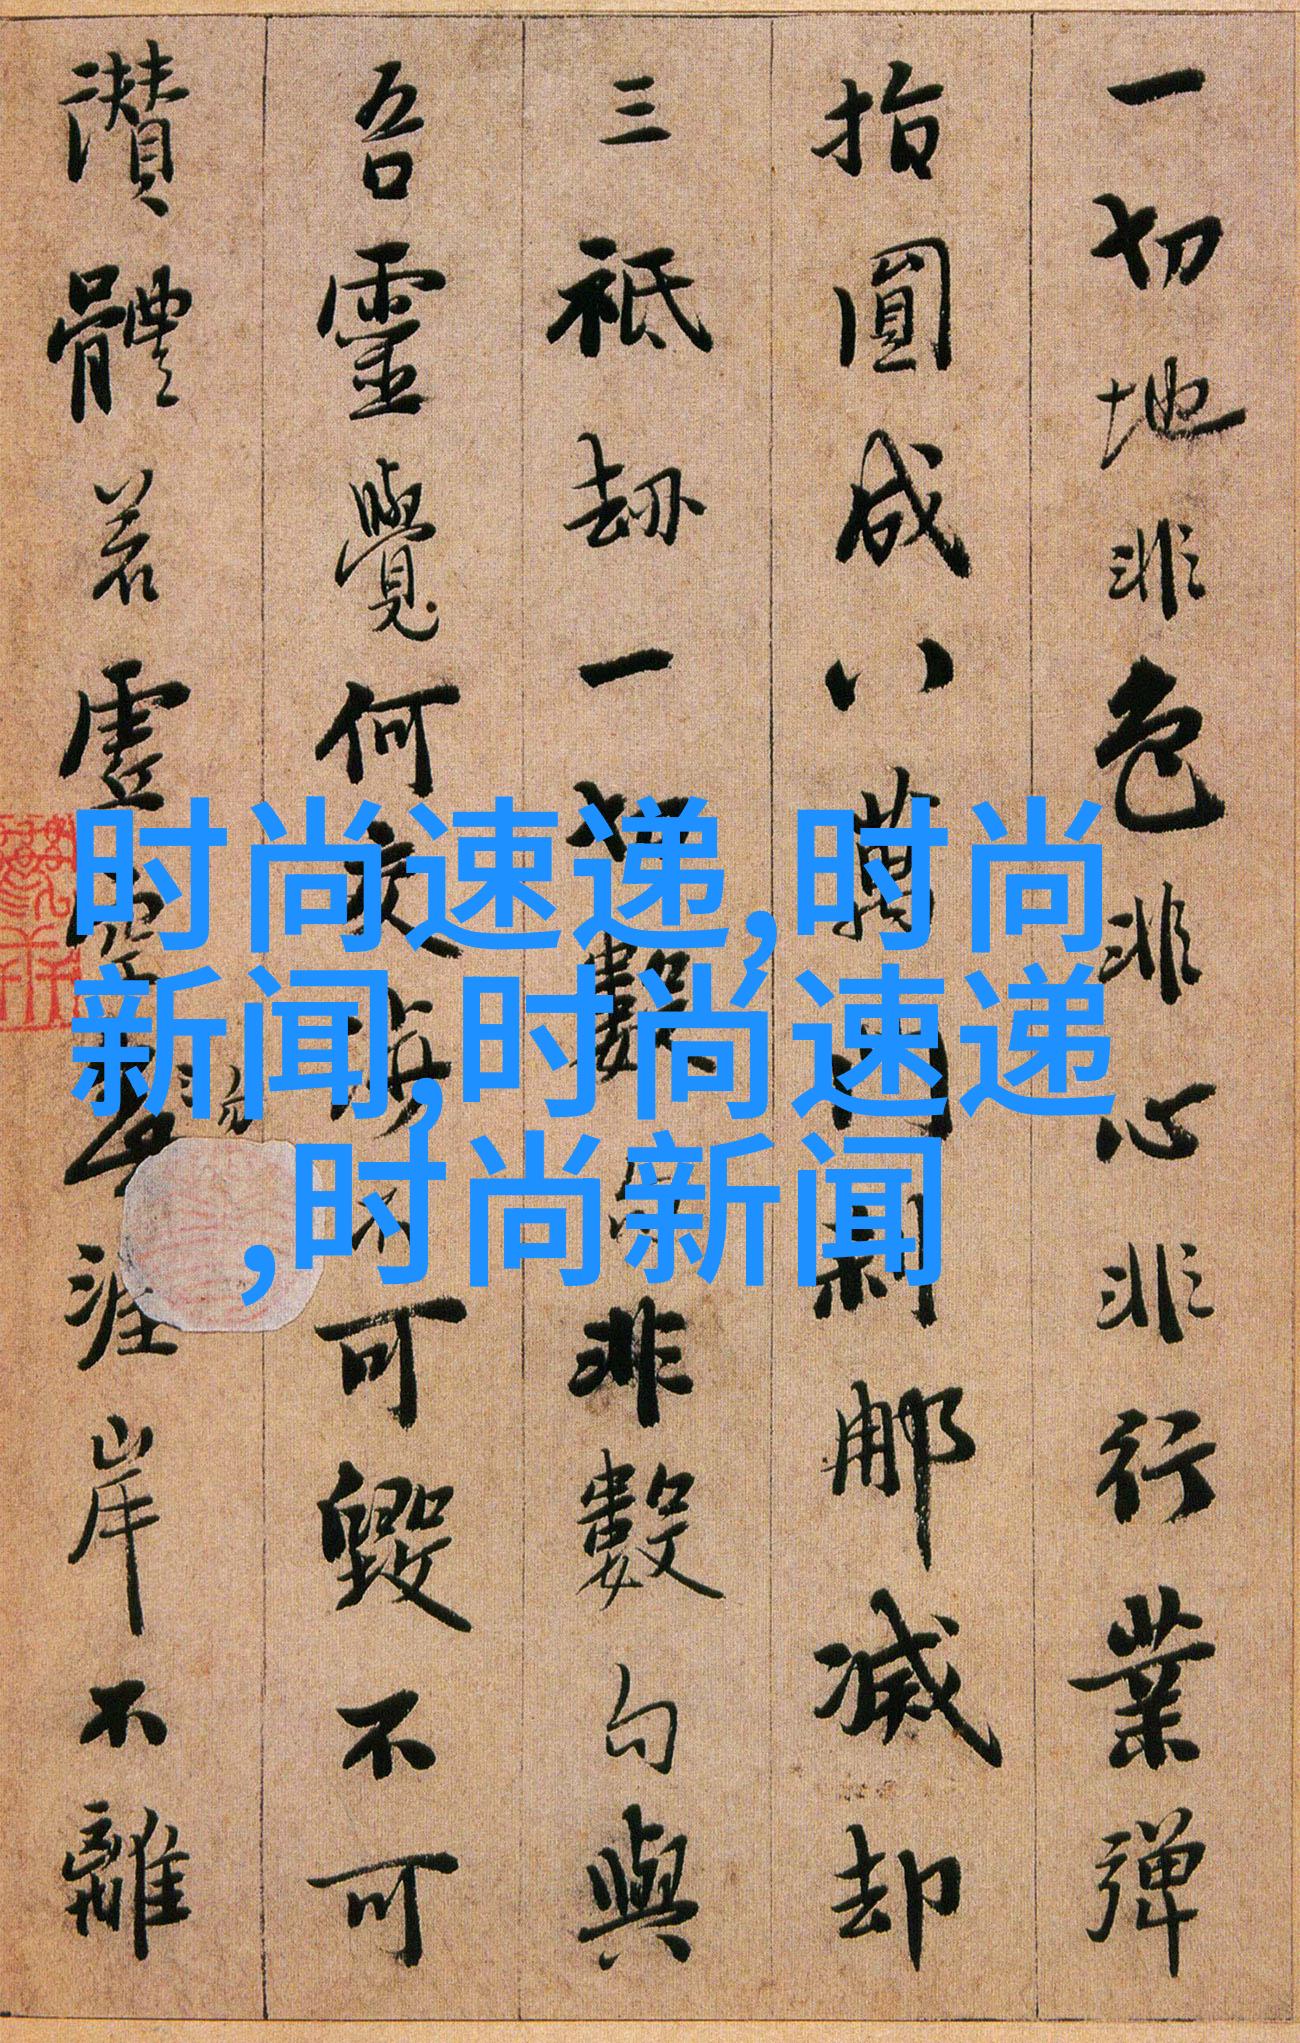 一切地非色非心非行業彈
指圓成八萬門刹那滅却
三祇劫一切數句非數句與
吾靈覺何交涉不可毀不可
讚體若虛空涯岸不離
时尚速递,时尚
新闻,时尚速递
,时尚新闻